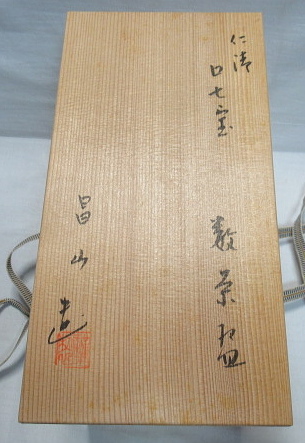 仁清
口七宝
数茶碗
昌山造